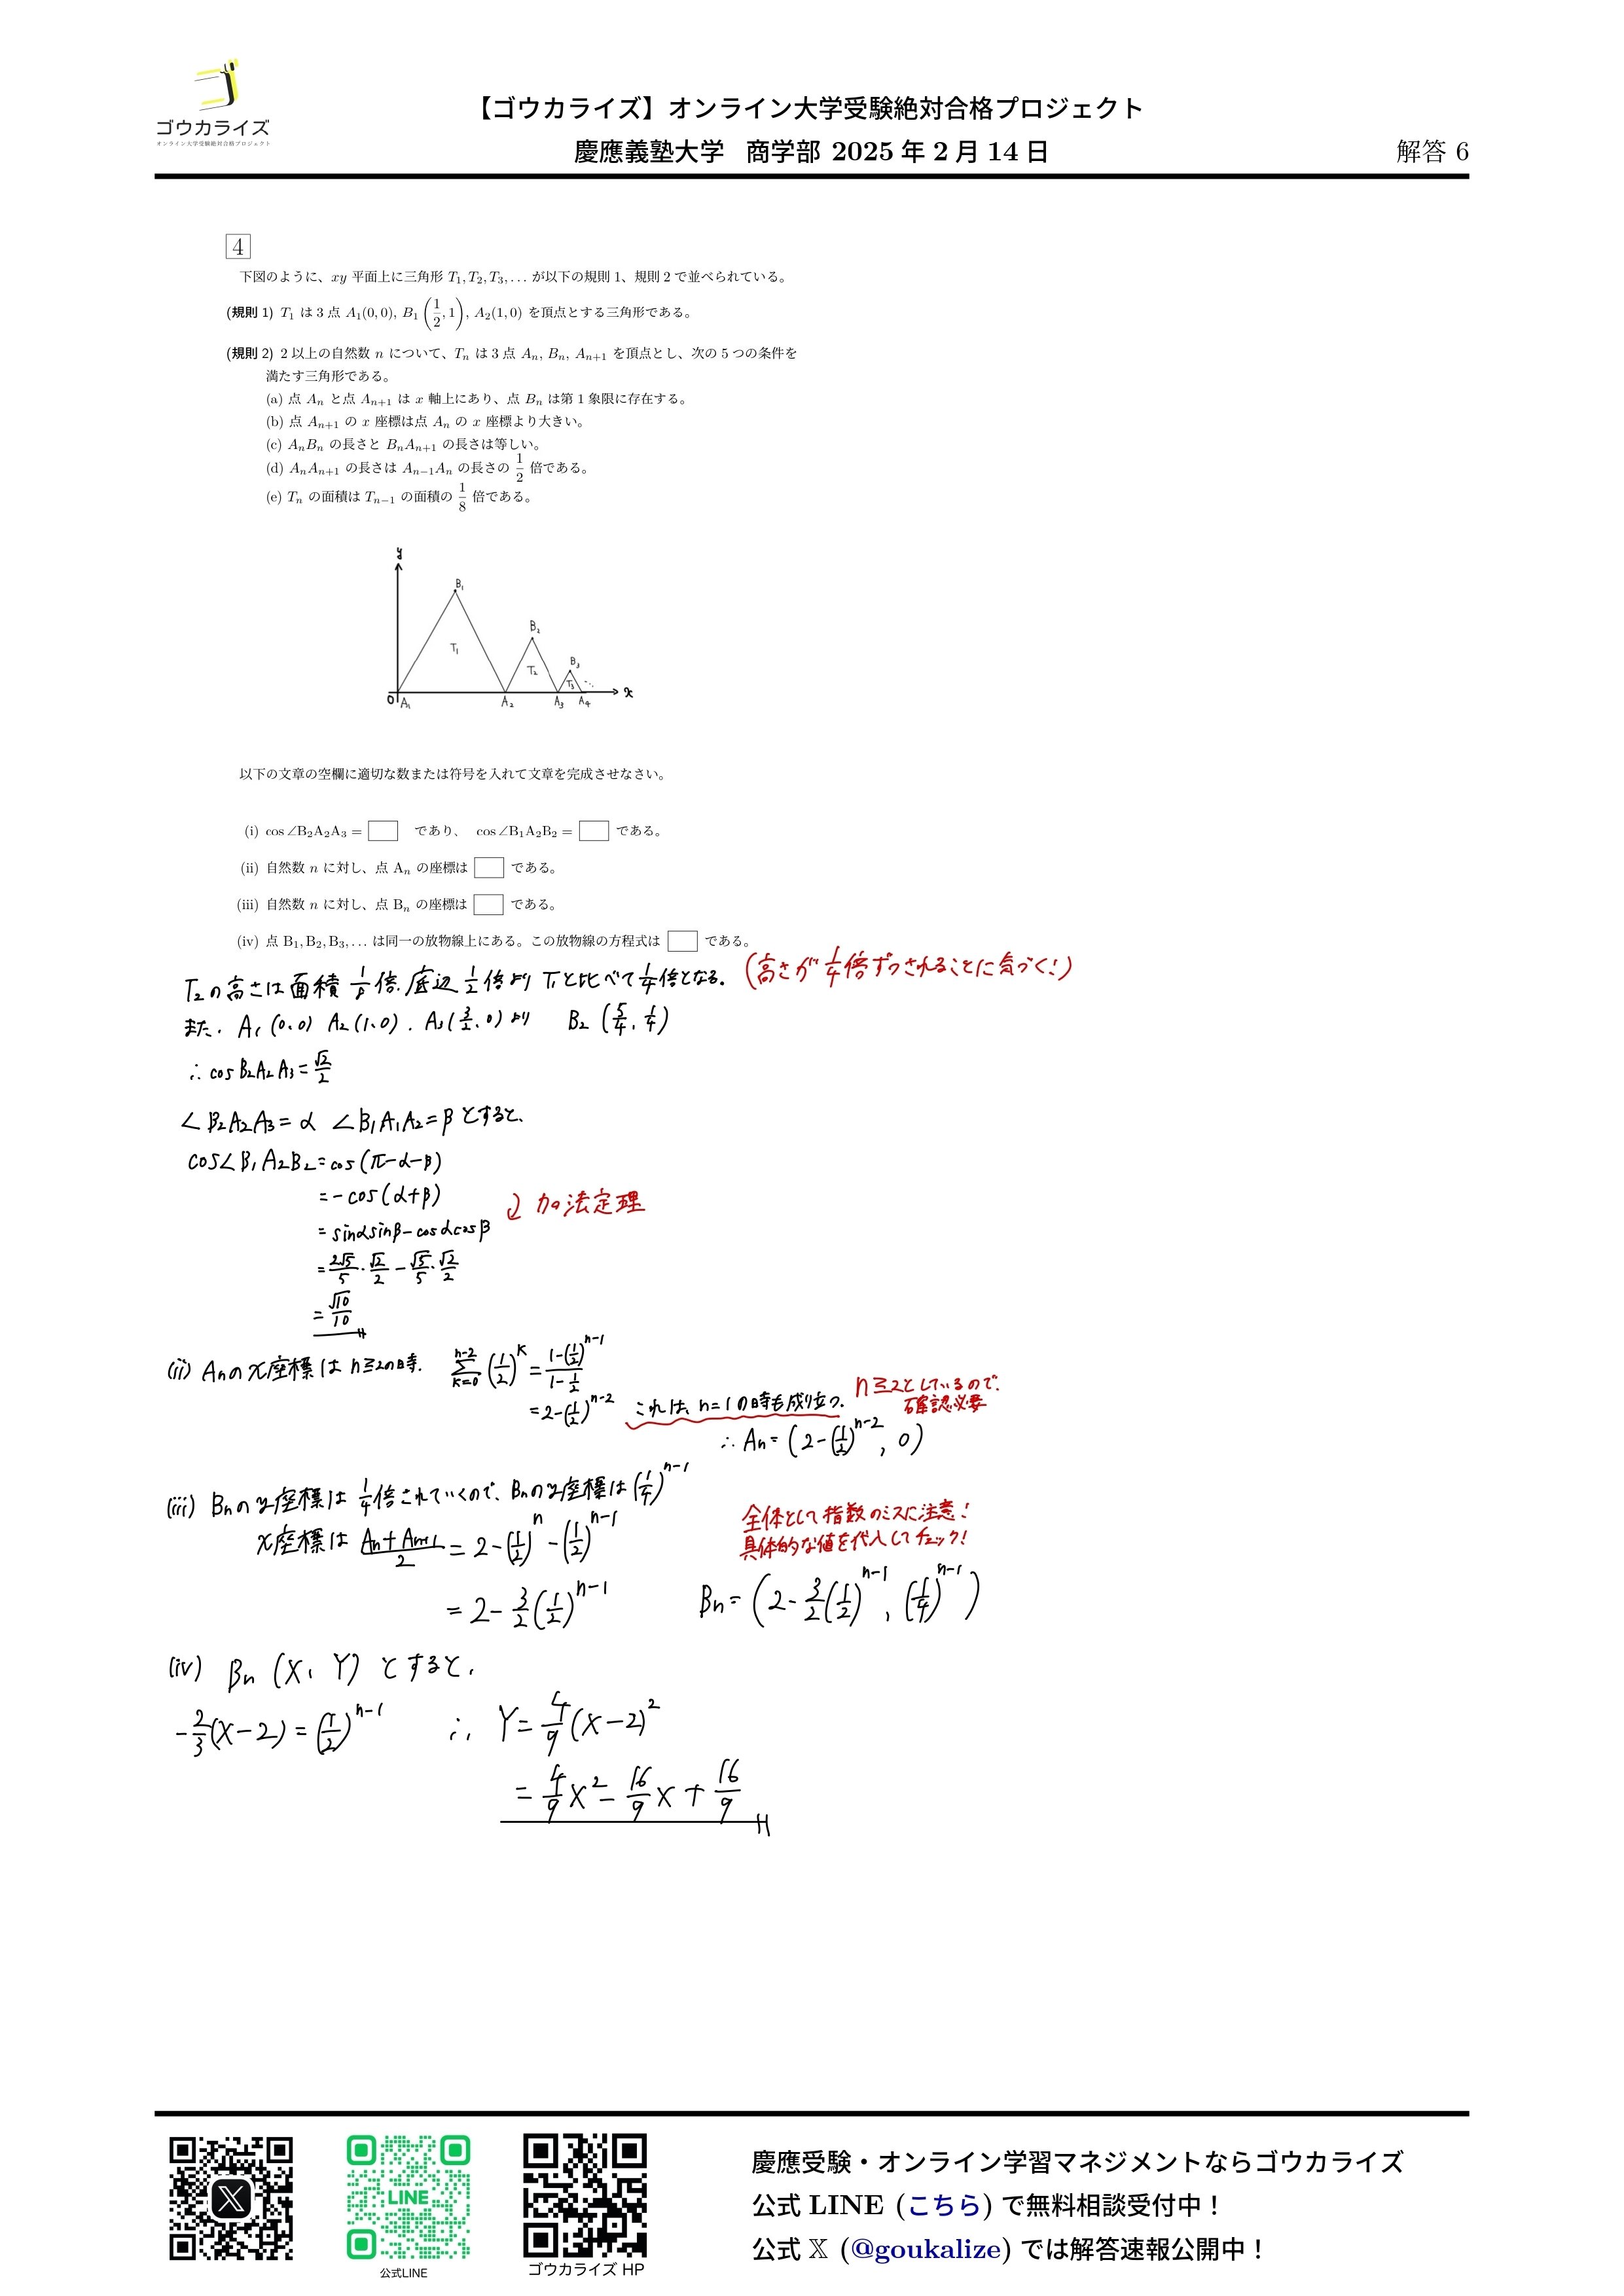 ゴウカライズ
オンライン大学受験絶対合格プロジェクト
【ゴウカライズ】オンライン大学受験絶対合格プロジェクト
慶應義塾大学 商学部 2025 年 2 月 14 日
解答 6
4
下図のように、xy 平面上に三角形 T₁, T₂, T₃, . . . が以下の規則 1、規則 2 で並べられている。
(規則 1) T₁ は 3 点 A₁(0, 0), B₁(1/2, 1), A₂(1, 0) を頂点とする三角形である。
(規則 2) 2 以上の自然数 n について、Tₙ は 3 点 Aₙ, Bₙ, Aₙ₊₁ を頂点とし、次の 5 つの条件を
満たす三角形である。
(a) 点 Aₙ と点 Aₙ₊₁ は x 軸上にあり、点 Bₙ は第 1 象限に存在する。
(b) 点 Aₙ₊₁ の x 座標は点 Aₙ の x 座標より大きい。
(c) AₙBₙ の長さと BₙAₙ₊₁ の長さは等しい。
(d) AₙAₙ₊₁ の長さは Aₙ₋₁Aₙ の長さの 1/2 倍である。
(e) Tₙ の面積は Tₙ₋₁ の面積の 1/8 倍である。
y
B₁
B₂
B₃
T₁
T₂
T₃
O A₁ A₂ A₃ A₄ x
以下の文章の空欄に適切な数または符号を入れて文章を完成させなさい。
(i) cos ∠B₂A₂A₃ = □ であり、 cos ∠B₁A₂B₂ = □ である。
(ii) 自然数 n に対し、点 Aₙ の座標は □ である。
(iii) 自然数 n に対し、点 Bₙ の座標は □ である。
(iv) 点 B₁, B₂, B₃, . . . は同一の放物線上にある。この放物線の方程式は □ である。
T₂の高さは面積 1/8 倍、底辺 1/2 倍より T₁と比べて1/4倍となる。 (高さが 1/4倍ずつされることに気づく!)
また、A₁(0、0) A₂(1、0)、A₃(3/2、0)より B₂(5/4、1/4)
∴ cos B₂A₂A₃ = √2/2
∠B₂A₂A₃ = α ∠B₁A₁A₂ = β とすると、
cos∠B₁A₂B₂ = cos(π-α-β)
= -cos(α+β)
加法定理
= sinαsinβ - cosαcosβ
= 2√5/5 · √2/2 - √5/5 · √2/2
= √10/10
(ii) Aₙのx座標は n≧2の時、 Σ[k=0→n-2] (1/2)^k = (1-(1/2)^(n-1))/(1-1/2)
= 2-(1/2)^(n-2) これは、n=1の時も成り立つ。 n≧2としているので、
確認必要
∴ Aₙ = (2-(1/2)^(n-2), 0)
(iii) Bₙのy座標は 1/4倍されていくので、Bₙのy座標は(1/4)^(n-1)
x座標は (Aₙ+Aₙ₊₁)/2 = 2-(1/2)^n-(1/2)^(n-1)
全体として指数のミスに注意!
具体的な値を代入してチェック!
= 2-3/2(1/2)^(n-1) Bₙ = (2-3/2(1/2)^(n-1), (1/4)^(n-1))
(iv) Bₙ (X、Y) とすると、
-2/3(X-2) = (1/2)^(n-1) ∴ Y = 4/9(X-2)²
= 4/9X² - 16/9X + 16/9
LINE
公式LINE
ゴウカライズ HP
慶應受験・オンライン学習マネジメントならゴウカライズ
公式 LINE (こちら) で無料相談受付中！
公式 𝕏 (@goukalize) では解答速報公開中！